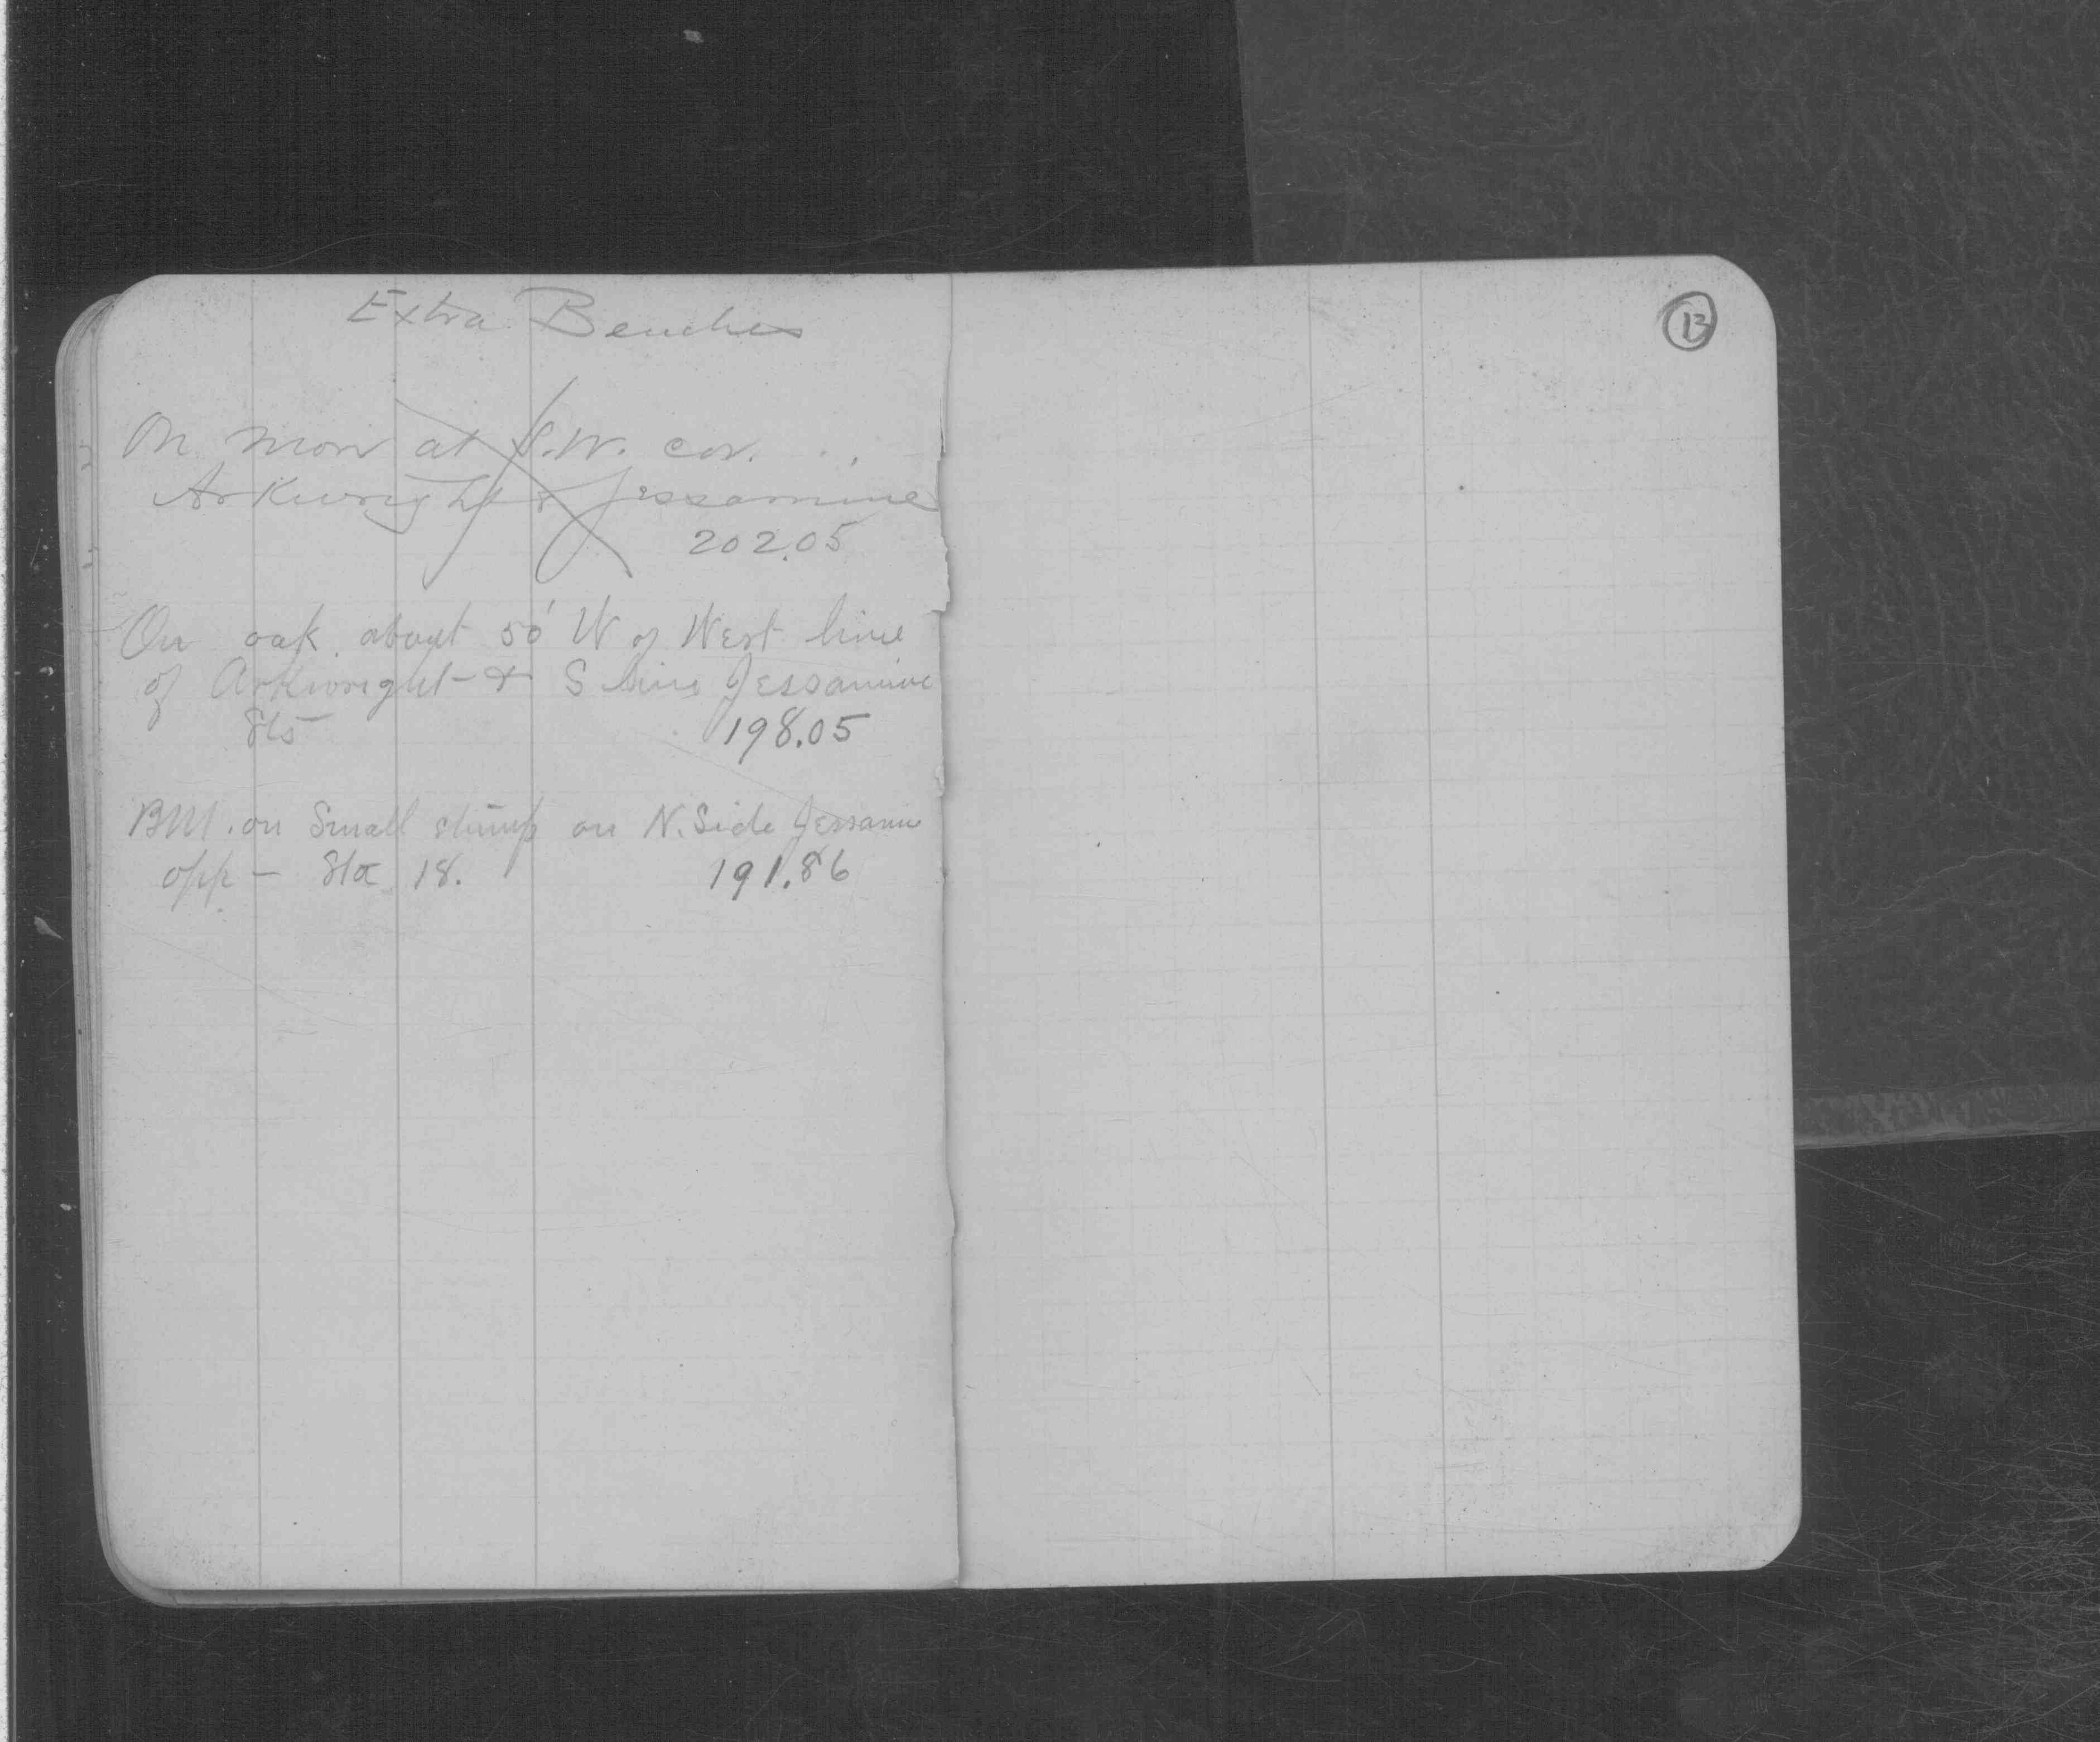 Extra Benches
On mon at S.W. cor.
Arkwright & Jessamine
202.05
On oak about 50' W of West line
of Arkwright & S line Jessamine
Sts
198.05
BM. on Small stump on N. Side Jessamine
opp - Sta 18.
191.86
13